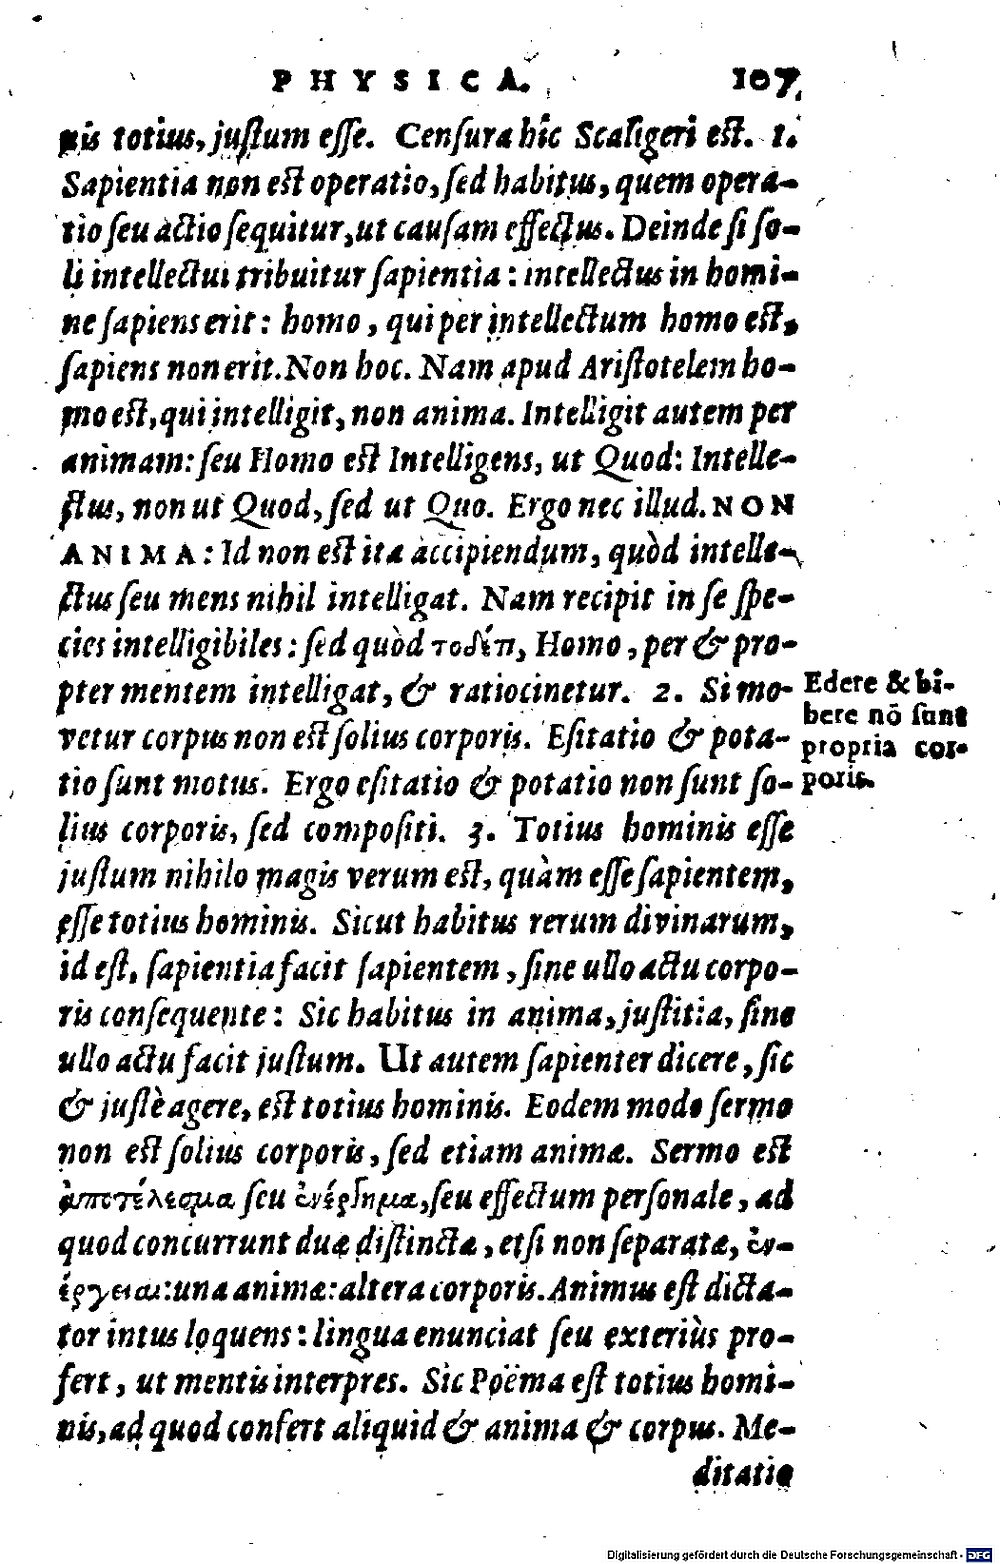 PHYSICA. 107
nis totius, justum esse. Censura hîc Scaligeri est. 1.
Sapientia non est operatio, sed habitus, quem opera-
tio seu actio sequitur, ut causam effectus. Deinde si so-
li intellectui tribuitur sapientia: intellectus in homi-
ne sapiens erit: homo, qui per intellectum homo est,
sapiens non erit. Non hoc. Nam apud Aristotelem ho-
mo est, qui intelligit, non anima. Intelligit autem per
animam: seu Homo est Intelligens, ut Quod: Intelle-
ctus, non ut Quod, sed ut Quo. Ergo nec illud. NON
ANIMA: Id non est ita accipiendum, quòd intelle-
ctus seu mens nihil intelligat. Nam recipit in se spe-
cies intelligibiles: sed quòd τοδέτι, Homo, per & pro-
pter mentem intelligat, & ratiocinetur. 2. Si mo-
vetur corpus non est solius corporis. Esitatio & pota-
tio sunt motus. Ergo esitatio & potatio non sunt so-
lius corporis, sed compositi. 3. Totius hominis esse
justum nihilo magis verum est, quàm esse sapientem,
esse totius hominis. Sicut habitus rerum divinarum,
id est, sapientia facit sapientem, sine ullo actu corpo-
ris consequente: Sic habitus in anima, justitia, sine
ullo actu facit justum. Ut autem sapienter dicere, sic
& justè agere, est totius hominis. Eodem modo sermo
non est solius corporis, sed etiam animæ. Sermo est
ἀποτέλεσμα seu ἐνέργημα, seu effectum personale, ad
quod concurrunt duæ distinctæ, etsi non separatæ, ἐν-
έργειαι: una animæ: altera corporis. Animus est dicta-
tor intus loquens: lingua enunciat seu exteriùs pro-
fert, ut mentis interpres. Sic Poëma est totius homi-
nis, ad quod confert aliquid & anima & corpus. Me-
ditatio
Edere & bi-
bere nō sunt
propria cor-
poris.
Digitalisierung gefördert durch die Deutsche Forschungsgemeinschaft - DFG